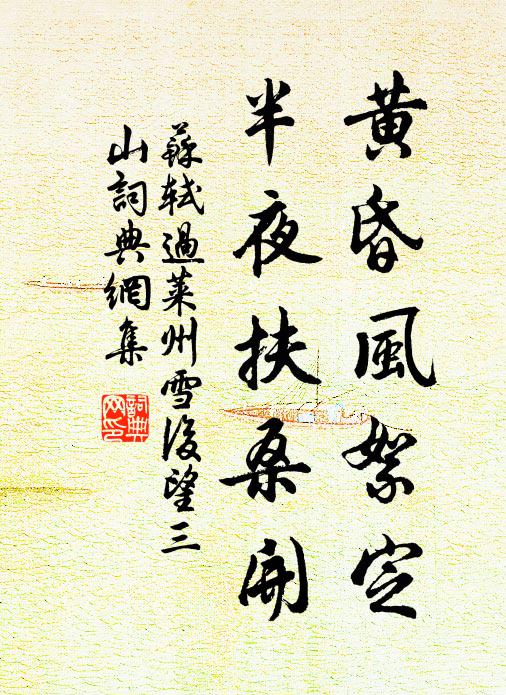 黄昏風絮定
半夜扶桑開
蘇軾過萊州雪後望三
山詞典網集
詞典
网印